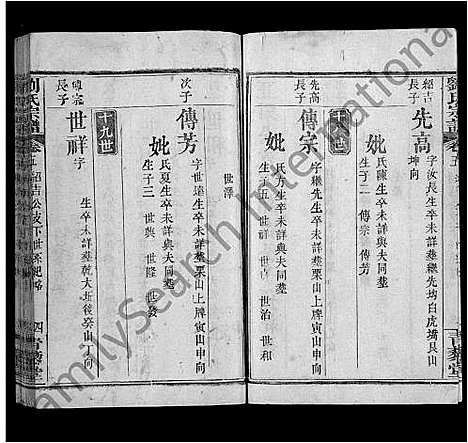 劉氏宗譜
卷五
紹吉
長子
先高
字汝長生卒未詳葬繼先均白虎塆艮山
坤向
妣
氏陳生卒未詳與夫同葬
生子二 傳宗 傳芳
十八世
先高
長子
傳宗
字繼先生卒未詳葬栗山上牌寅山申向
妣
氏方生卒未詳與夫同葬
生子三 世吉 世治 世和
世澤
次子
傳芳
字世遠生卒未詳葬栗山上牌寅山申向
妣
氏夏生卒未詳與夫同葬
生子三 世興 世隆 世發
十九世
傳宗
長子
世祥
字 生卒未詳葬乾大坵後癸山丁向
劉氏宗譜
卷五 紹吉公支下世系紀略
四 青藜堂
FamilySearch International